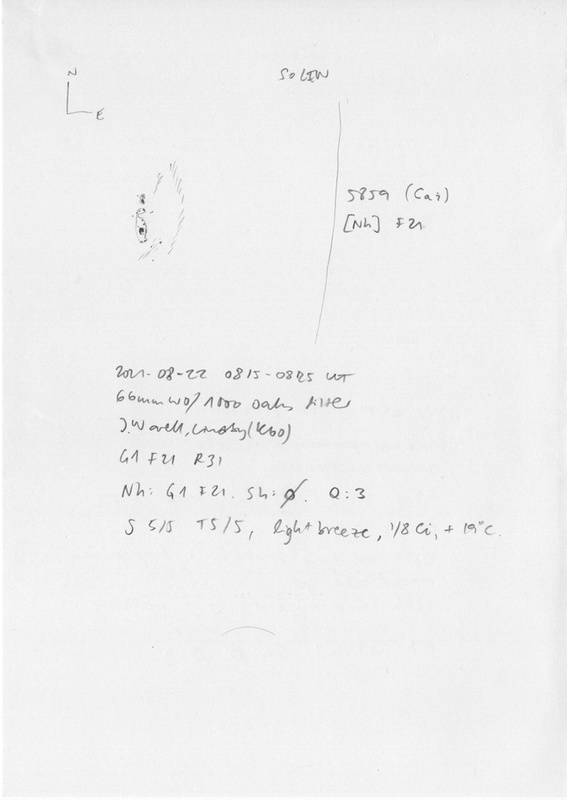 N
E
SOLEN
5859 (Cai)
[Nh] F21
2021-08-22 0815-0825 UT
66mm WO/1000 Oaks filter
J.Warell, (K60)
G1 F21 R31
Nh: G1 F21. Sh: ø. Q: 3
S 5/5 T5/5, light breeze, 1/8 Ci, + 19°C.